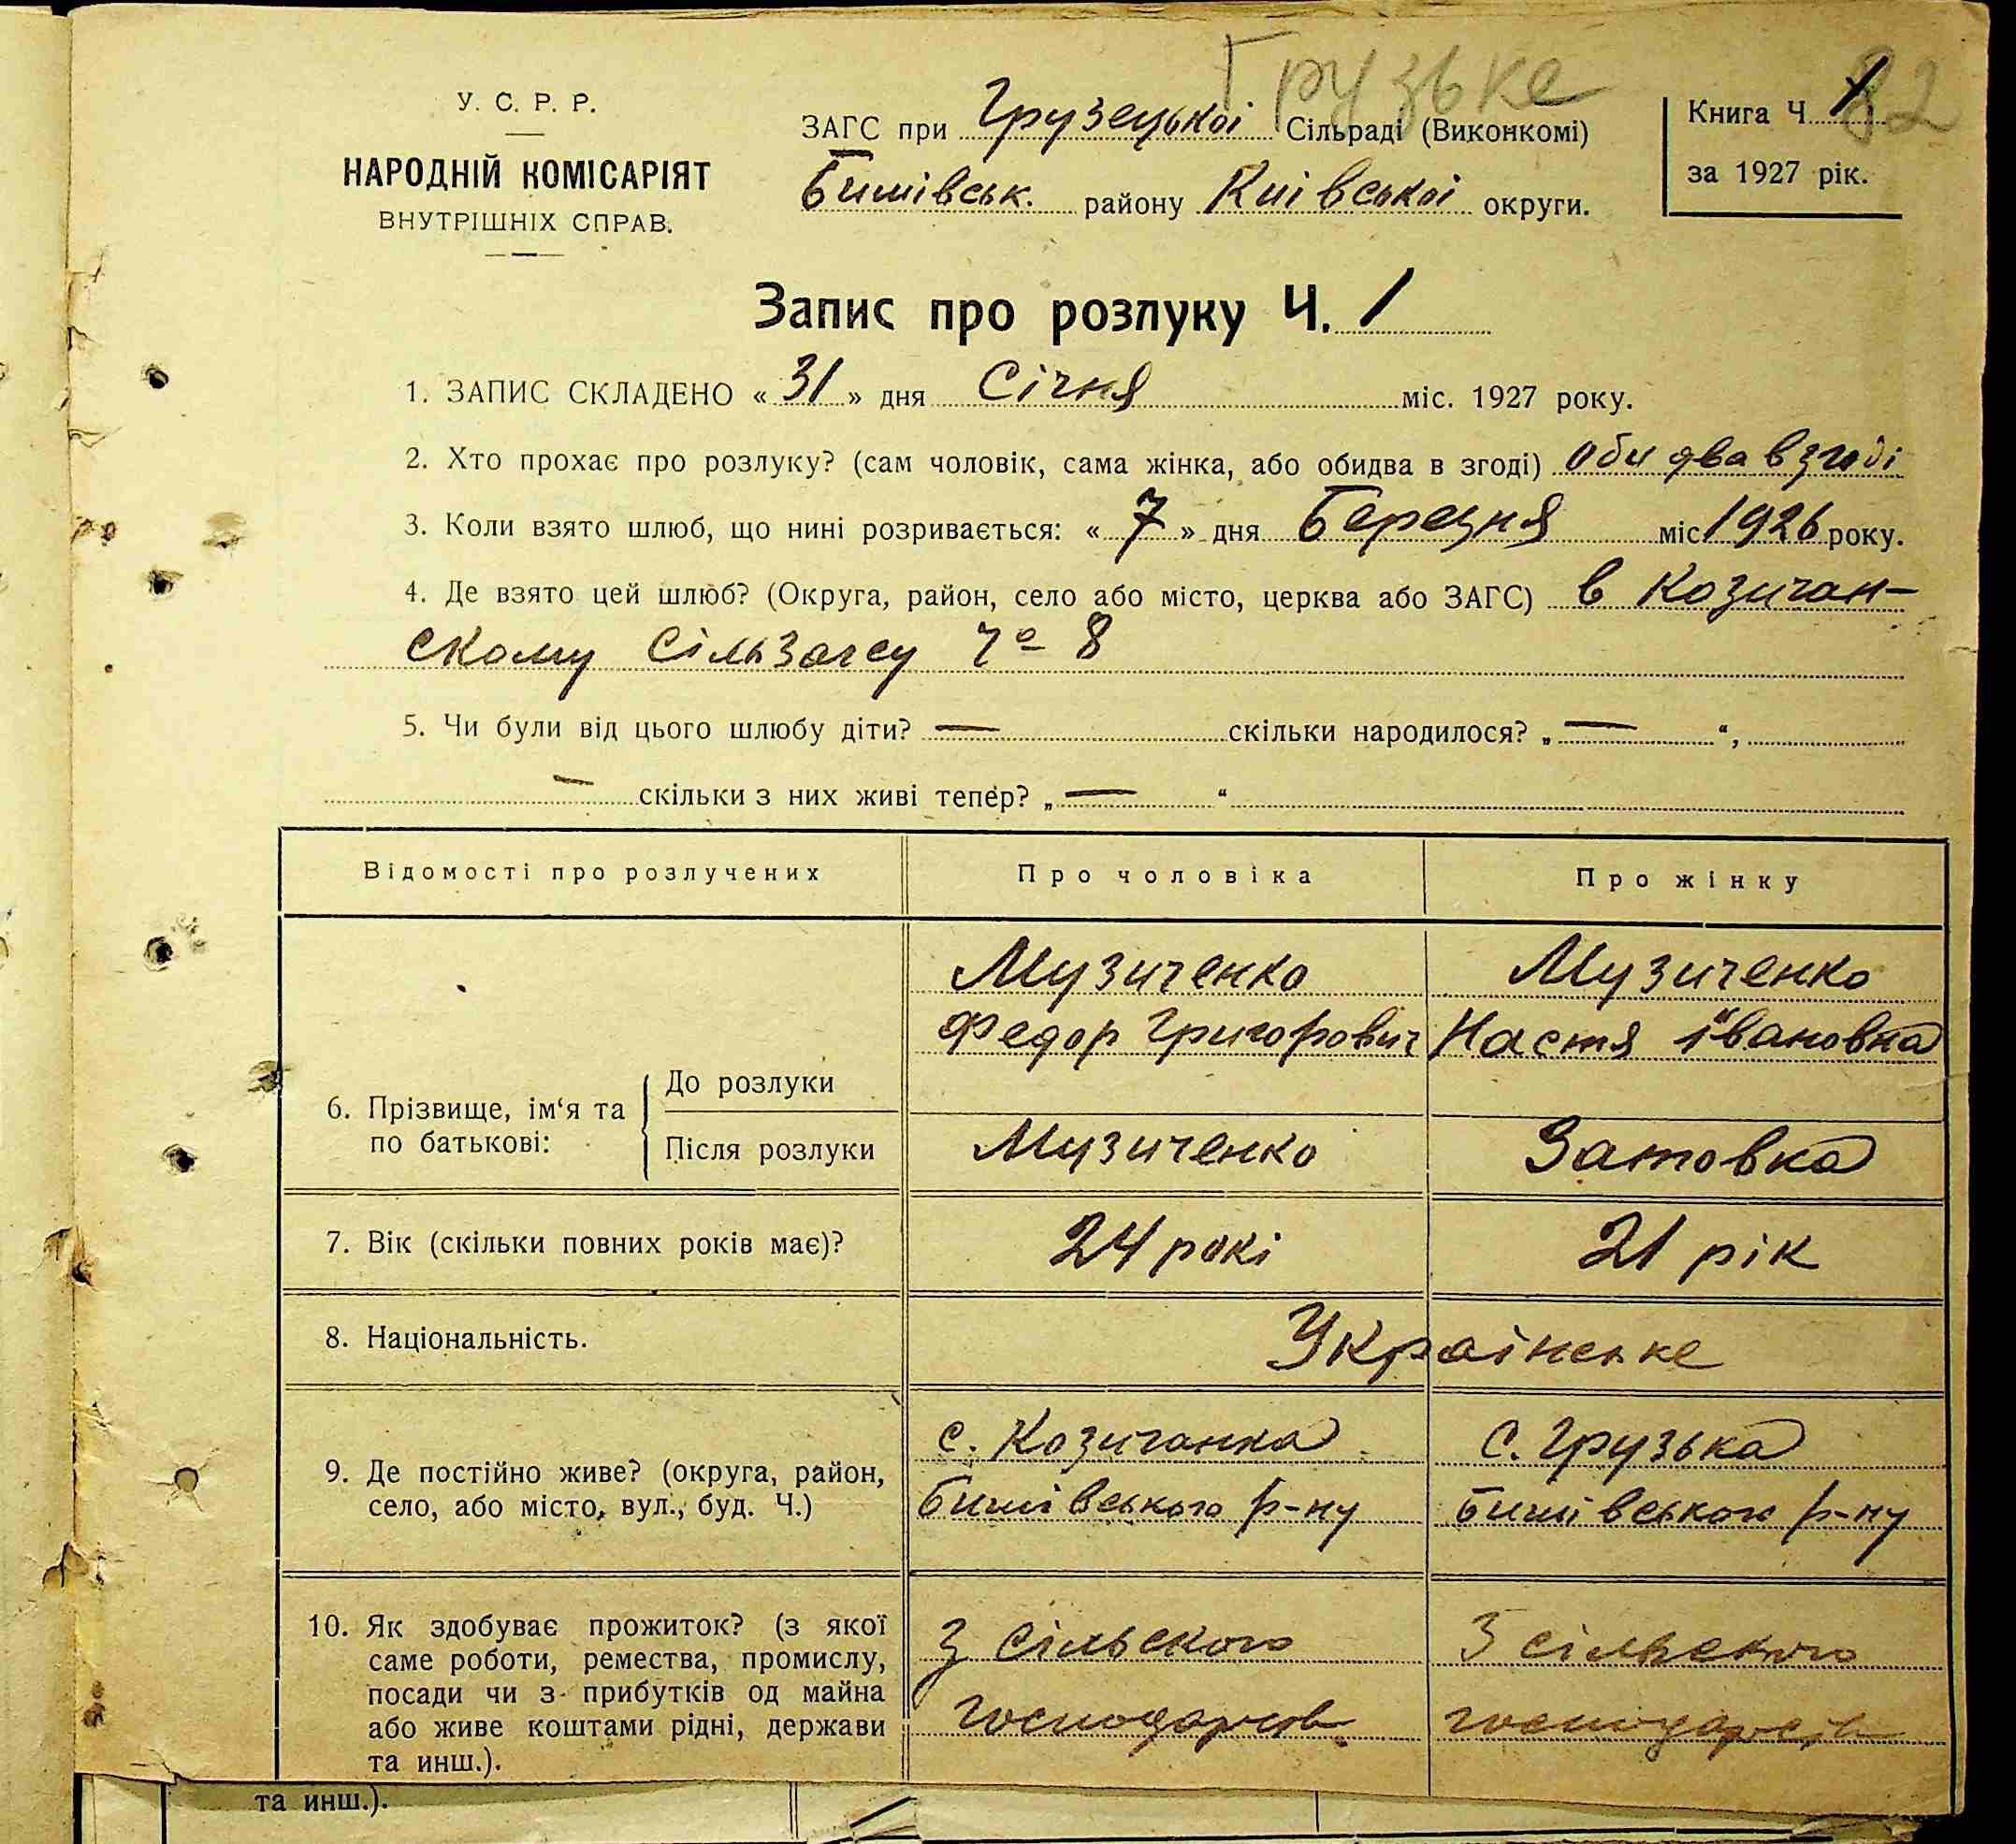 Грузьке
82
У. С. Р. Р.
НАРОДНІЙ КОМІСАРІЯТ
ВНУТРІШНІХ СПРАВ.
ЗАГС при Грузецької Сільраді (Виконкомі)
Бишівськ. району Київської округи.
Книга Ч 1
за 1927 рік.
Запис про розлуку Ч. 1
1. ЗАПИС СКЛАДЕНО « 31 » дня Січня міс. 1927 року.
2. Хто прохає про розлуку? (сам чоловік, сама жінка, або обидва в згоді) обидва в згоді
3. Коли взято шлюб, що нині розривається: « 7 » дня Березня міс 1926 року.
4. Де взято цей шлюб? (Округа, район, село або місто, церква або ЗАГС) в Козичан-
скому Сільзагсу Ч° 8
5. Чи були від цього шлюбу діти? — скільки народилося? „ — “,
— скільки з них живі тепер? „ — “
Відомості про розлучених
Про чоловіка
Про жінку
6. Прізвище, ім‘я та
по батькові:
До розлуки
Музиченко
Федор Григорович
Музиченко
Настя Івановна
Після розлуки
Музиченко
Затовка
7. Вік (скільки повних років має)?
24 рокі
21 рік
8. Національність.
Українське
9. Де постійно живе? (округа, район,
село, або місто, вул., буд. Ч.)
с. Козичанка
Бишівського р-ну
с. Грузька
Бишівського р-ну
10. Як здобуває прожиток? (з якої
саме роботи, ремества, промислу,
посади чи з прибутків од майна
або живе коштами рідні, держави
та инш.).
З сільского
господарств
З сільского
господарств
та инш.).